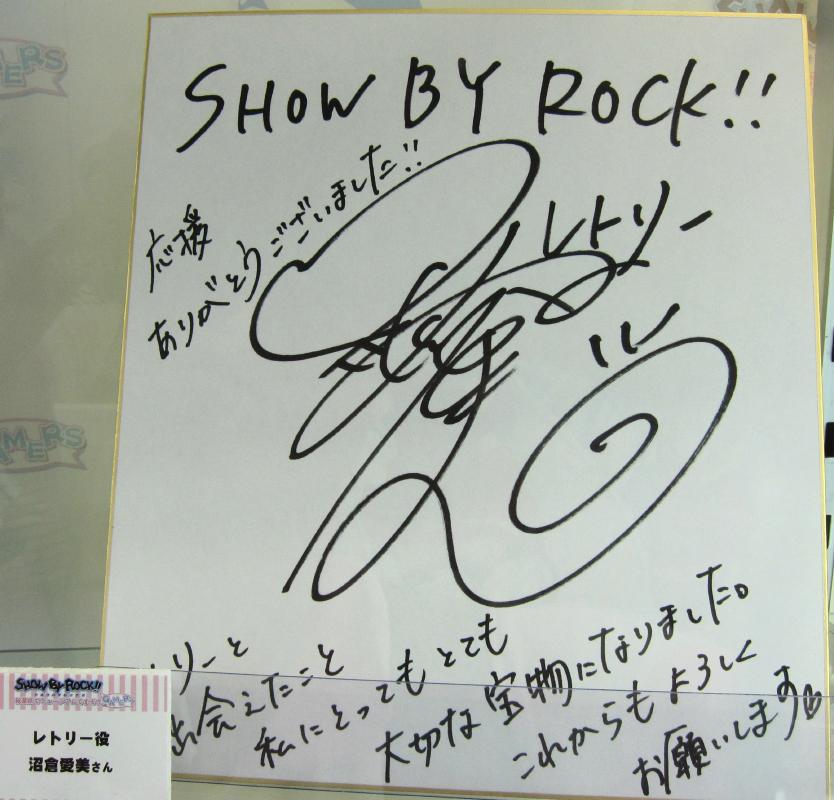 SHOW BY ROCK!!
応援
ありがとうございました!!
レトリー
リーと
出会えたこと
私にとってもとても
大切な宝物になりました。
これからもよろしく
お願いします
SHOW BY ROCK!!
GAMERS
レトリー役
沼倉愛美さん
AMERS